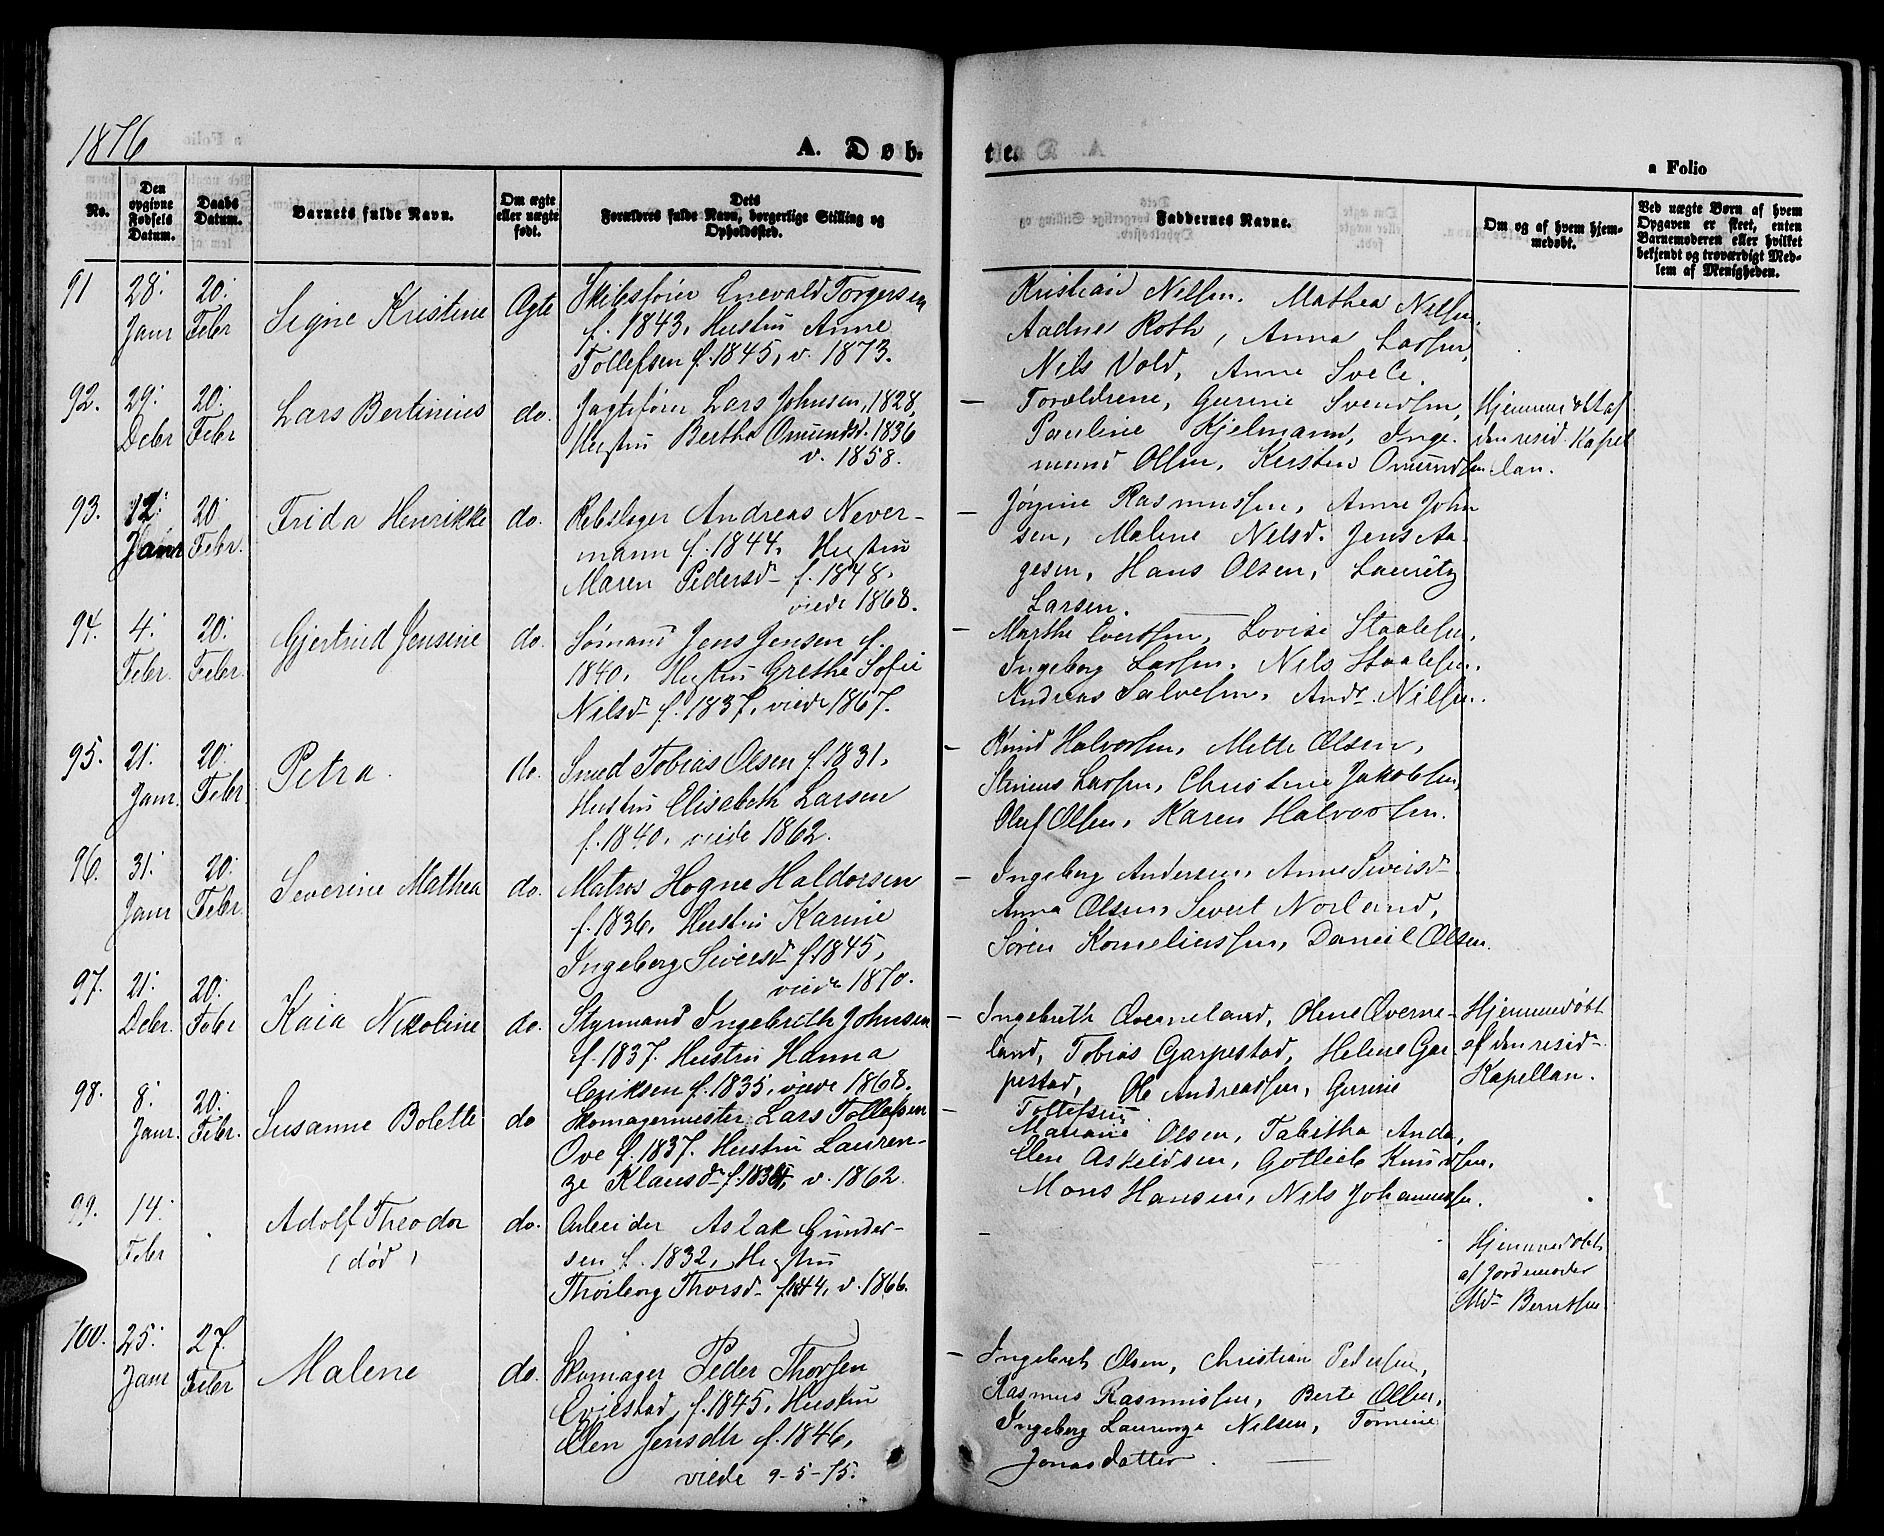 1876
A. Døb-
te.
a Folio
No.
Den opgivne Fødsels Datum.
Daabs Datum.
Barnets fulde Navn.
Om ægte eller uægte født.
Dets Forældres fulde Navn, borgerlige Stilling og Opholdssted.
Faddernes Navne.
Om og af hvem hjemmedøbt.
Ved uægte Børn af hvem Opgaven er skeet, enten Barnemoderen eller hvilket bekjendt og troværdigt Medlem af Menigheden.
91
28. Janr
20. Febr
Signe Kristine
Ægte
Skibsfører Enevald Torgersen
f. 1843, Hustru Anne
Tollefsen f. 1845, v. 1873.
Kristian Nilsen, Mathea Nilsen,
Aadne Roth, Anna Larsen,
Nils Vold, Anne Svele.
92.
29. Debr
20. Febr
Lars Bertinius
do.
Jagtefører Lars Johnsen, 1828,
Hustru Bertha Omundsd. 1836
v. 1858.
Forældrene, Gurine Svendsen,
Pauline Kjelmann, Inge-
mund Olsen, Kersten Omundsen
Hjemmedøbt af
den resid. Kapel
lan.
93.
12. Janr
20 Febr.
Frida Henrikke
do.
Rebslager Andreas Never-
mann f. 1844, Hustru
Maren Pedersd f. 1848,
viede 1868.
Jørgine Rasmussen, Anne John
sen, Malene Nelsd. Jens Aa-
gesen, Hans Olsen, Lauritz
Larsen.
94.
4. Febr.
20. Febr.
Gjertrud Jensine
do.
Sømand Jens Jensen f.
1840, Hustru Grethe Sofie
Nilsd f. 1837, viede 1867.
Marthe Evertsen, Lovise Staalesen,
Ingeborg Larsen, Nils Staalesen,
Andreas Salvesen, Andr. Nilsen.
95.
21. Janr.
20. Febr
Petra
do.
Smed Tobias Olsen f. 1831,
Hustru Elisabeth Larsen
f. 1840, viede 1862.
Knud Halvorsen, Mette Olsen,
Stenius Larsen, Christine Jakobsen,
Oluf Olsen, Karen Halvorsen.
96.
31. Janr
20. Febr
Severine Mathea
do.
Matros Hogne Haldorsen
f. 1836, Hustru Karine
Ingeborg Siversd f. 1845,
viede 1870.
Ingeborg Andersen, Anne Siversd
Anna Olsen, Severt Norland,
Søren Korneliussen, Daniel Olsen.
97.
21. Debr.
20. Febr
Kaia Nikoline
do.
Styrmand Ingebrith Johnsen
f. 1837. Hustru Hanna
Eriksen f. 1835, viede 1868.
Ingebreth Overneland, Olene Overne-
land, Tobias Garpestad, Helene Gar-
pestad, Ole Andreassen, Gurine
Tollefsen
Hjemmedøbt
af den resid.
Kapellan.
98.
8. Janr.
20. Febr.
Susanne Bolette
do
Skomagermester Lars Tollefsen
Ove f. 1837. Hustru Lauren-
ze Klausd v. 1862.
Mariane Olsen, Tabitha Anda,
Elen Askildsen, Gotlieb Knudsen,
Mons Hansen, Nils Johannessen.
99.
14. Febr
Adolf Theodor
(død)
do.
Arbeider Aslak Gunder-
sen f. 1832, Hustru
Thorborg Thorsd f. 44, v. 1866.
Hjemmedøbt
af Jordemoder
Md. Berntsen
100.
25. Janr
27. Febr
Malene
do.
Skomager Peder Thorsen
Qviestad, f. 1845, Hustru
Elen Jensdtr f. 1846,
viede 9-5-75.
Ingebret Olsen, Christian Pedersen,
Rasmus Rasmussen, Berte Olsen,
Ingeborg Laurenze Nilsen, Tomine
Jonasdatter.